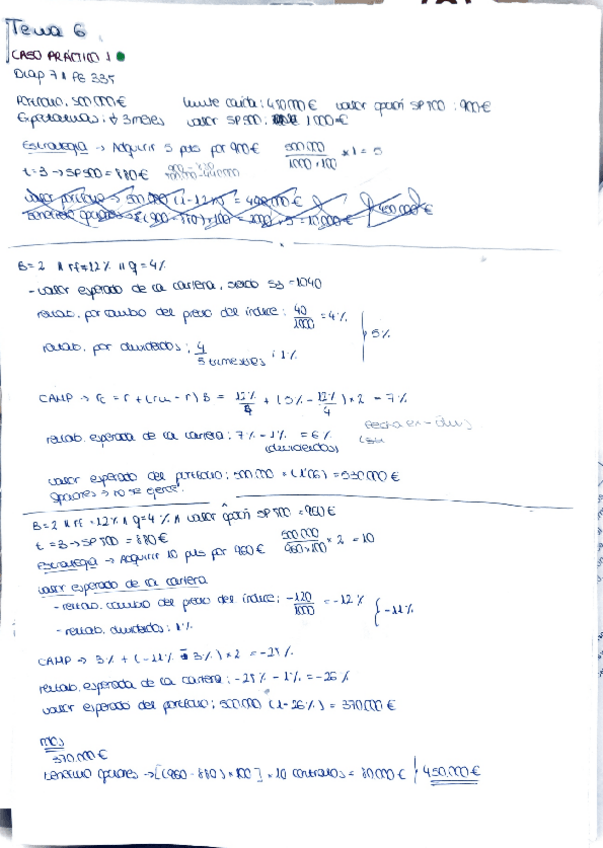 Tema 6
CASO PRÁCTICO 1
Diap 71 PG 335
Portfolio: 500.000€ límite caída: 450.000€ valor opción SP500: 900€
Expectativas: ↓ 3 meses valor SP500: 1000€
Estrategia → Adquirir 5 puts por 900€ 500.000/1000×100 × 1 = 5
t=3 → SP500 = 880€
valor portfolio → 500.000 (1-12%) = 440.000€
Beneficio opciones → (900-880)×100 = 2000 × 5 = 10.000€ 450.000€
B=2 rf=12% q=4%
- valor esperado de la cartera, siendo S3=1040
rentab. por cambio del precio del índice: 40/1000 = 4%
rentab. por dividendos: 4/ trimestres = 1% 5%
CAMP → rc = r + (rm - r) B = 12%/4 + (5% - 12%/4) × 2 = 7%
rentab. esperada de la cartera: 7% - 1% = 6%
(dividendos)
valor esperado del portfolio: 500.000 × (1'06) = 530.000€
Opciones → no se ejerce.
B=2 rf=12% q=4% valor opción SP500 = 960€
t=3 → SP500 = 880€
Estrategia → Adquirir 10 puts por 960€ 500.000/960×100 × 2 = 10
valor esperado de la cartera
- rentab. cambio del precio del índice: -120/1000 = -12%
- rentab. dividendos: 1% -11%
CAMP → 3% + (-11% - 3%) × 2 = -25%
rentab. esperada de la cartera: -25% - 1% = -26%
valor esperado del portfolio: 500.000 (1-26%) = 370.000€
370.000€
Beneficio opciones → [(960 - 880) × 100] × 10 contratos = 80.000€ 450.000€